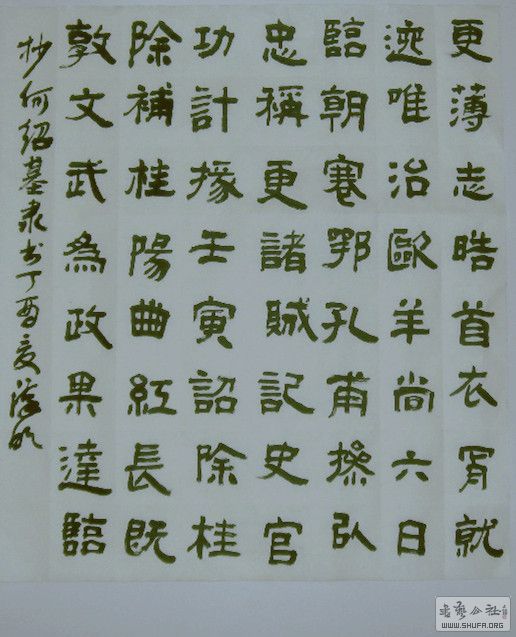 更薄志晧首衣胥就
迹唯治歐羊尚六日
臨朝褰鄂孔甫操以
忠稱更諸賊記史官
功計掾壬寅詔除桂
除補桂陽曲紅長既
敦文武為政果達臨
抄何紹基隶书丁酉夏
书艺公社
WWW.SHUFA.ORG